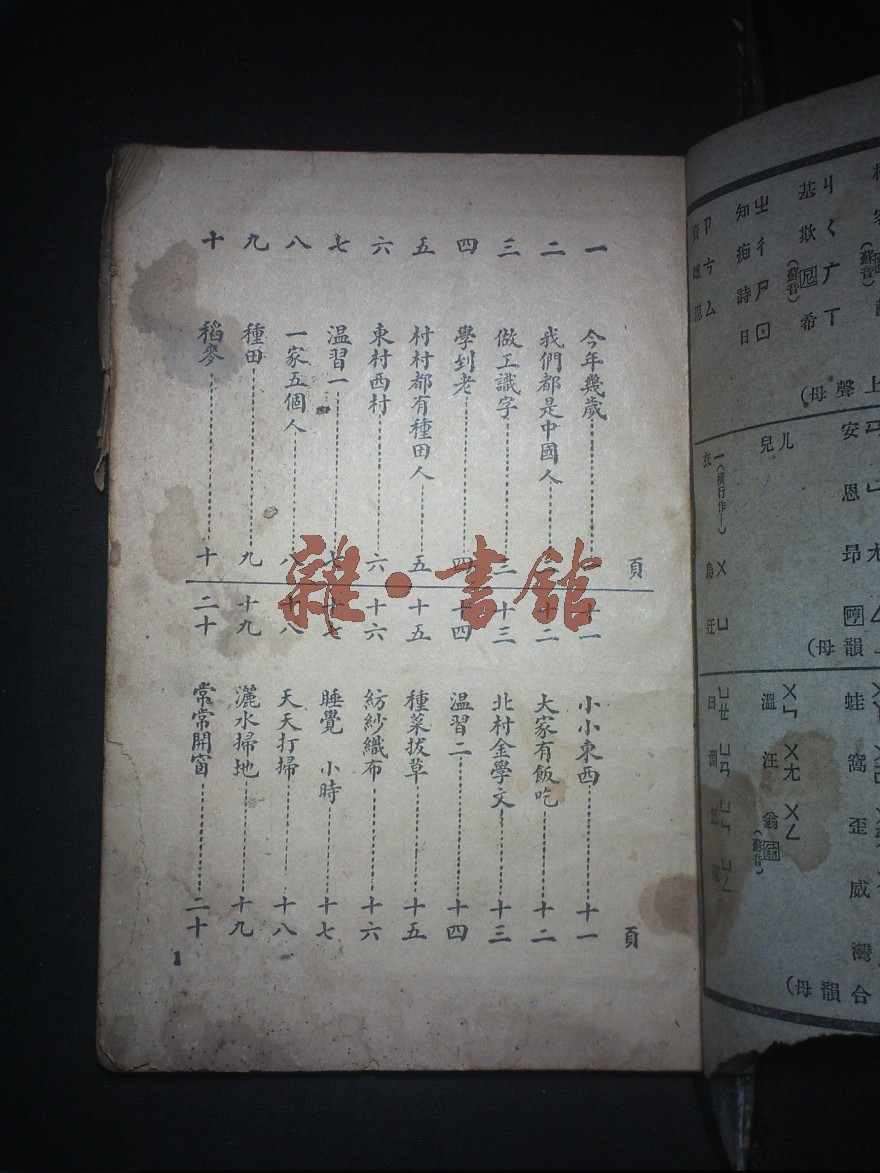 頁
一 今年幾歲 一
二 我們都是中國人 二
三 做工識字 三
四 學到老 四
五 村村都有種田人 五
六 東村西村 六
七 温習一 七
八 一家五個人 八
九 種田 九
十 稻麥 十
頁
十一 小小東西 十一
十二 大家有飯吃 十二
十三 北村金學文 十三
十四 温習二 十四
十五 種菜拔草 十五
十六 紡紗織布 十六
十七 睡覺 小時 十七
十八 天天打掃 十八
十九 灑水掃地 十九
二十 常常開窗 二十
1
雜·書館
ㄐㄑ广ㄒ
基欺 希
(蘇音)
ㄓㄔㄕㄖ
知痴詩日
ㄗㄘㄙ
上聲母)
ㄢㄣㄤㄥ
安恩昂
ㄦ
兒
一(橫行作丨)ㄨㄩ
衣烏迂
韻母)
蛙窩歪威灣
ㄨㄣ ㄨㄤ ㄨㄥ
溫汪翁
(蘇音)
ㄩㄝ ㄩㄢ ㄩㄣ ㄩㄥ
合韻母)